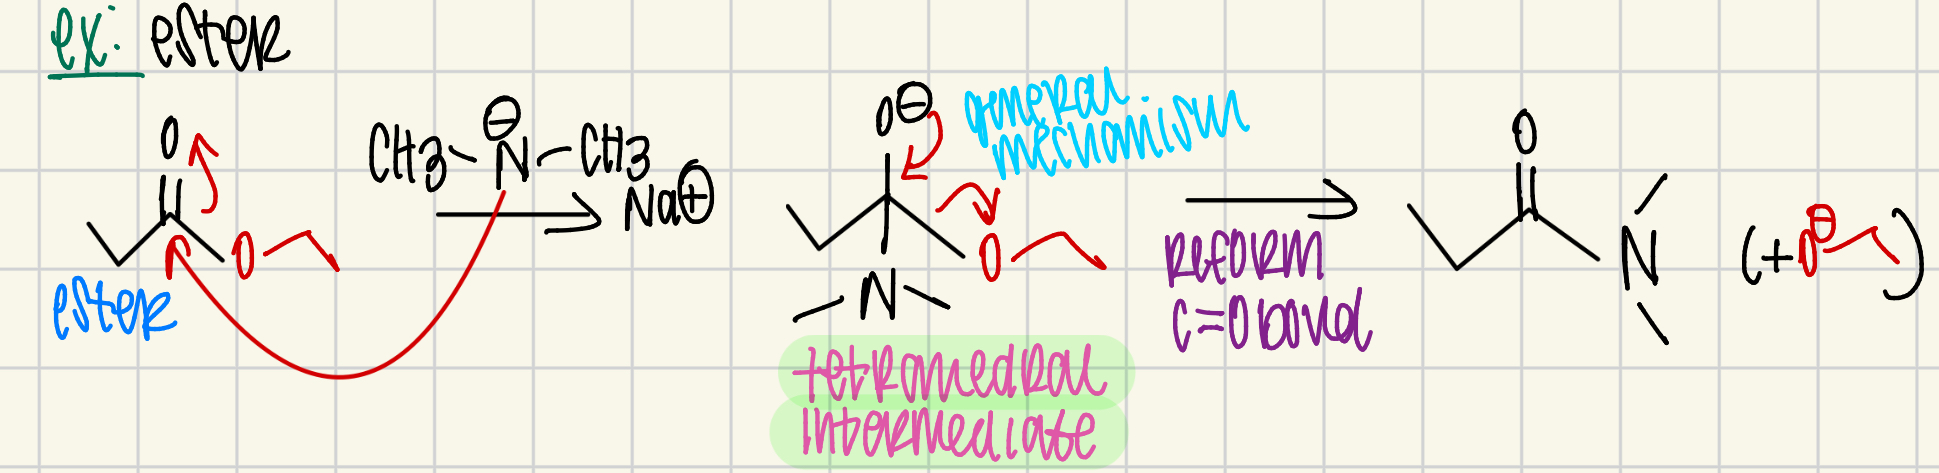 ex: ester
O
O
ester
CH3 N⊖ CH3
Na⊕
O⊖
general mechanism
O
N
tetrahedral
intermediate
reform
C=O bond
O
N
(+ O⊖ )